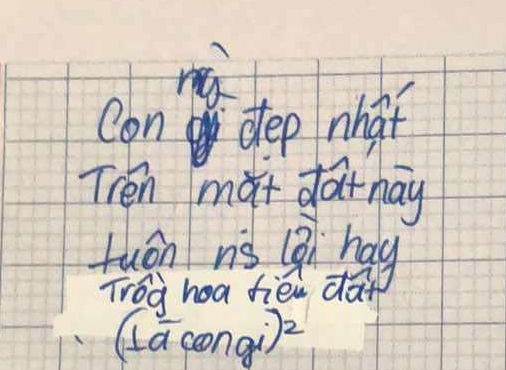 Con gì đẹp nhất
Trên mặt đất này
tuôn ns lời hay
Trồg hoa tiêu đất
(là con gì)²